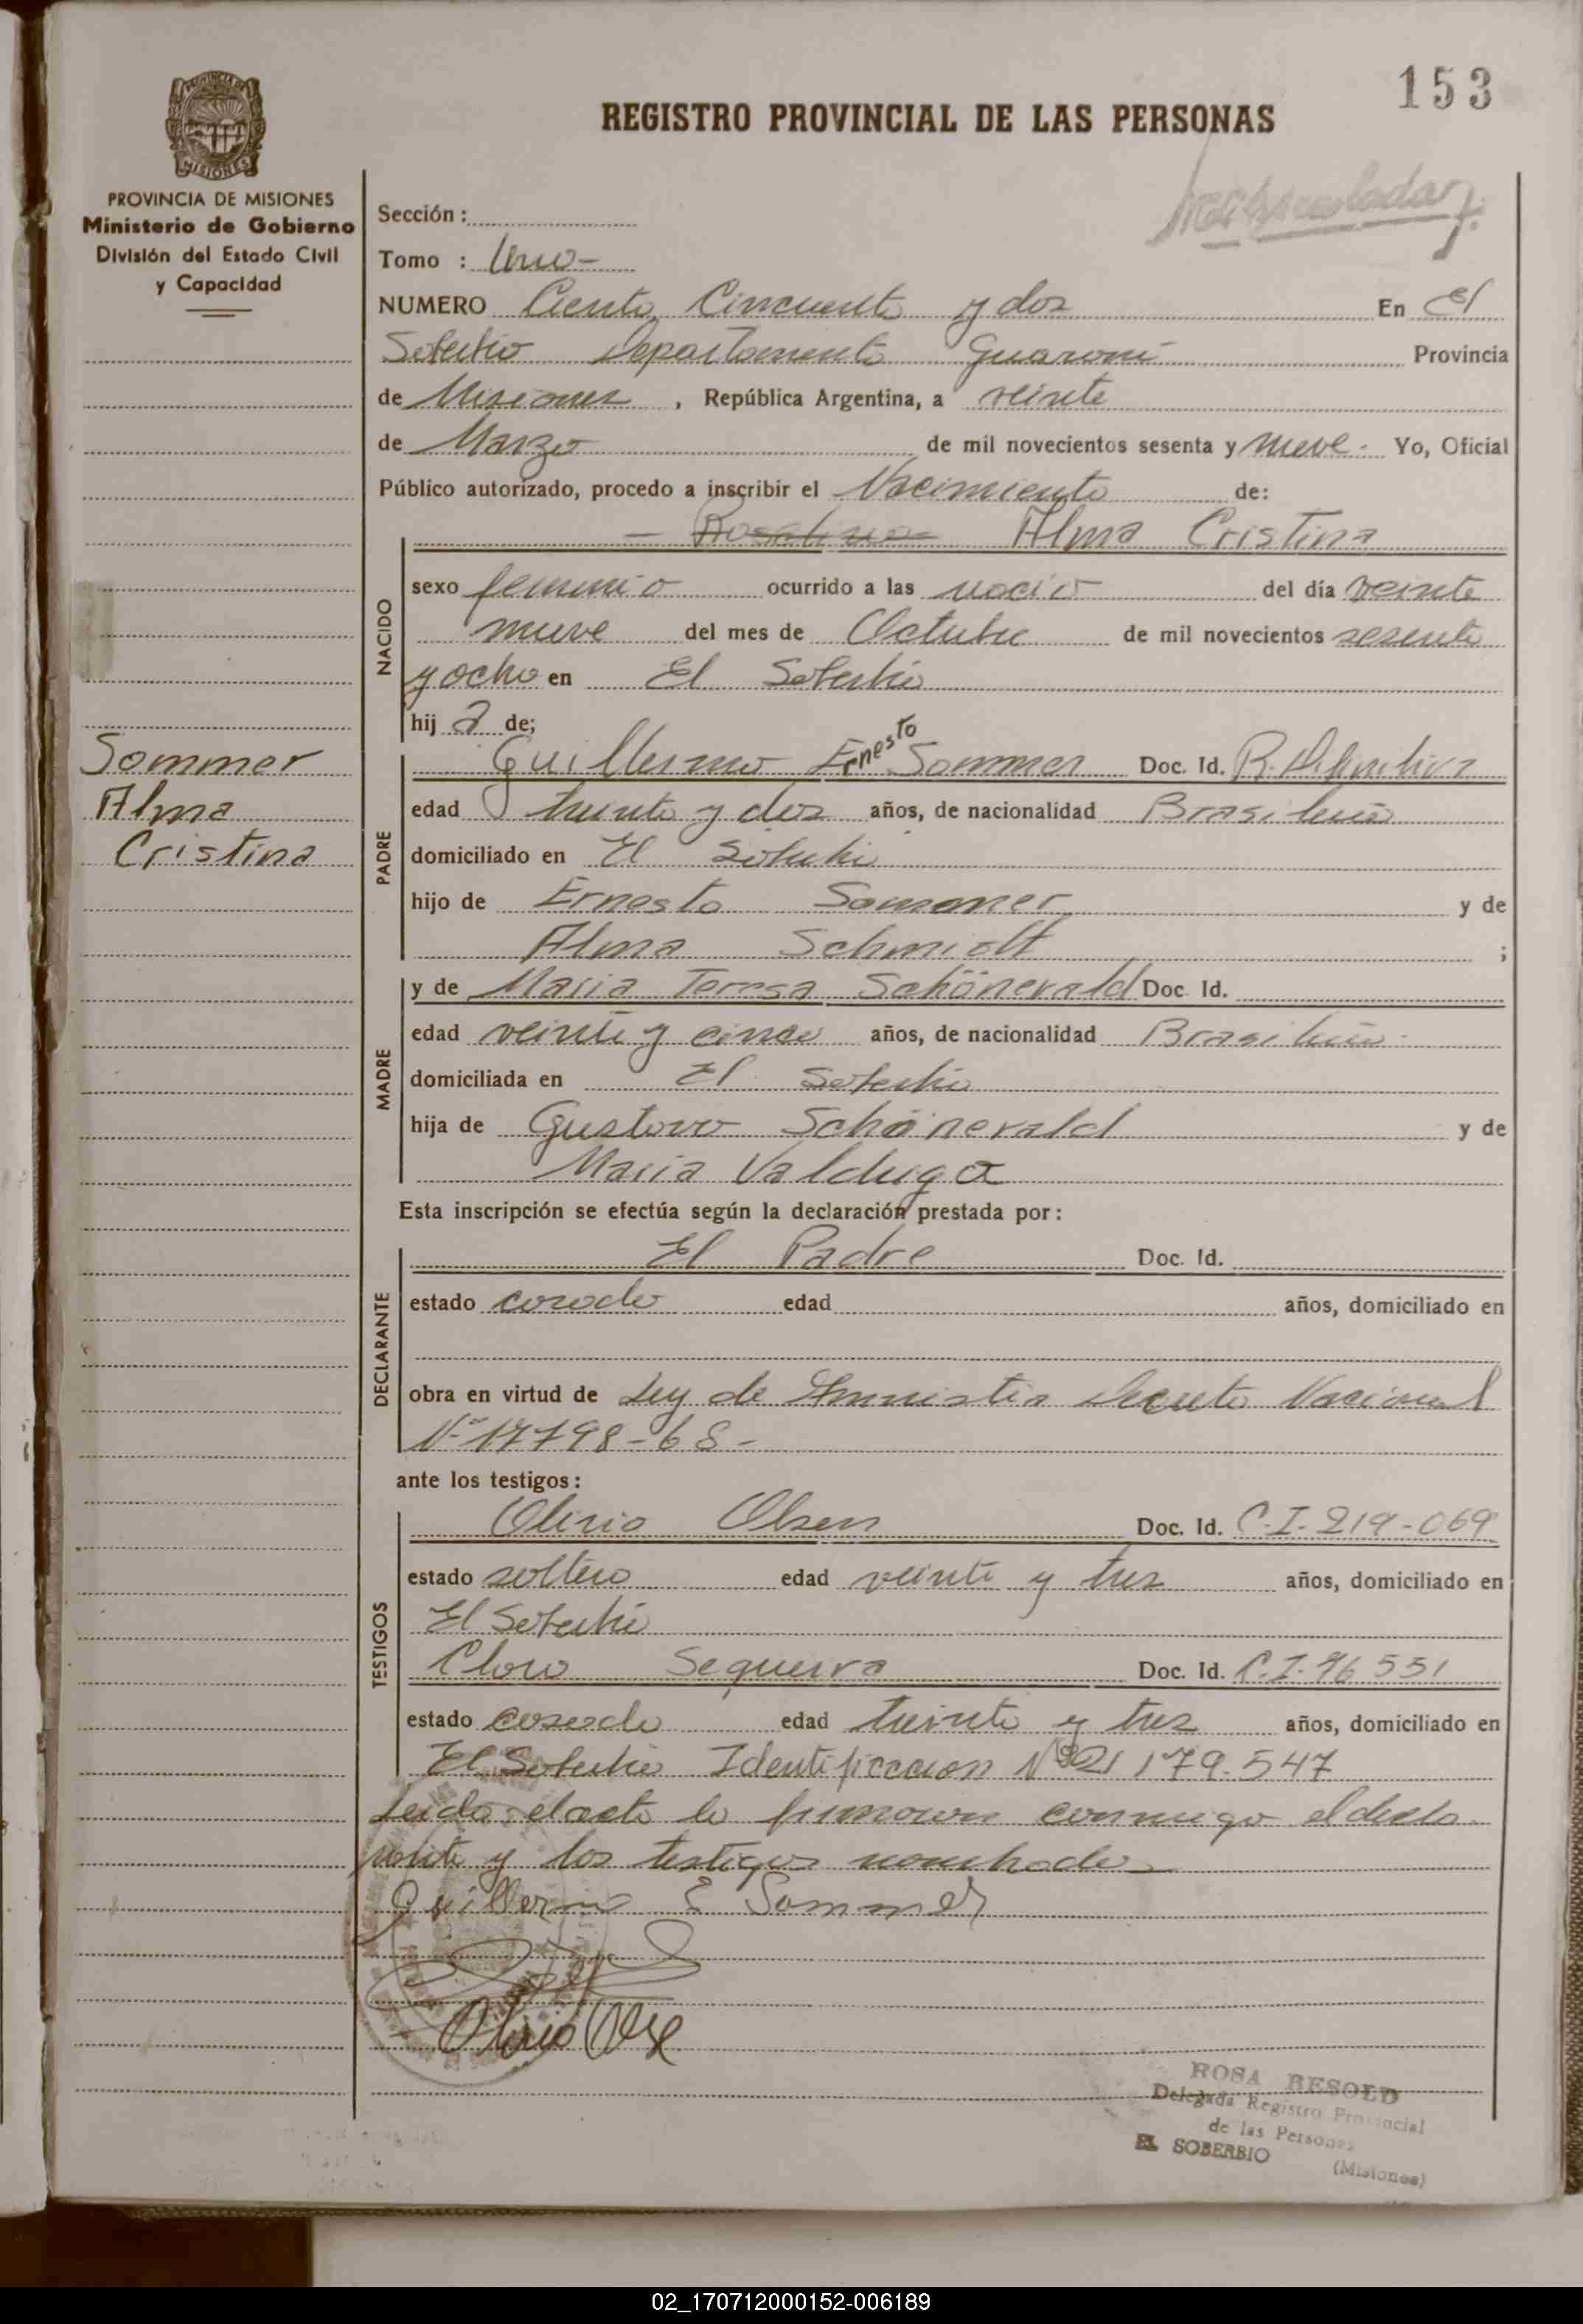 153
REGISTRO PROVINCIAL DE LAS PERSONAS
PROVINCIA DE
MISIONES
PROVINCIA DE MISIONES
Ministerio de Gobierno
División del Estado Civil
y Capacidad
Sección :
Tomo : Uno -
NUMERO Ciento Cincuenta y dos En El
Soberbio Departamento Guaraní Provincia
de Misiones , República Argentina, a veinte
de Marzo de mil novecientos sesenta y nueve - Yo, Oficial
Público autorizado, procedo a inscribir el Nacimiento de:
Alma Cristina
NACIDO
sexo femenino ocurrido a las del día veinte
nueve del mes de Octubre de mil novecientos sesenta
y ocho en El Soberbio
hij a de;
Sommer
Alma
Cristina
PADRE
Guillermo Ernesto Sommer Doc. Id.
edad treinta y dos años, de nacionalidad Brasileña
domiciliado en El Soberbio
hijo de Ernesto Sommer y de
Alma Schmidt ;
MADRE
y de Maria Teresa Schönevald Doc. Id.
edad veinte y cinco años, de nacionalidad Brasileña
domiciliada en El Soberbio
hija de Gustavo Schönevald y de
Maria Valduga
Esta inscripción se efectúa según la declaración prestada por :
DECLARANTE
El Padre Doc. Id.
estado casado edad años, domiciliado en
obra en virtud de Ley de Amnistia Decreto Nacional
Nº 17798-68-
ante los testigos :
TESTIGOS
Olirio Olsen Doc. Id. C.I. 219-069
estado soltero edad veinte y tres años, domiciliado en
El Soberbio
Sequeira Doc. Id. C.I. 96 551
estado casado edad treinta y tres años, domiciliado en
El Soberbio Identificacion Nº 21 179.547
Leida el acta la firmaron conmigo el decla-
rante y los testigos nombrados
Guillermo E Sommer
Olirio
ROSA BESOLD
Delegada Registro Provincial
de las Personas
EL SOBERBIO (Misiones)
02_170712000152-006189